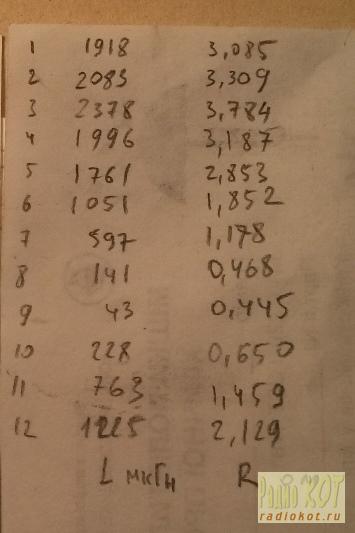 1 1918 3,085
2 2083 3,309
3 2378 3,784
4 1996 3,187
5 1761 2,853
6 1051 1,852
7 597 1,178
8 141 0,468
9 43 0,445
10 228 0,650
11 763 1,459
12 1225 2,129
L мкГн R Ом
Радио КОТ
radiokot.ru